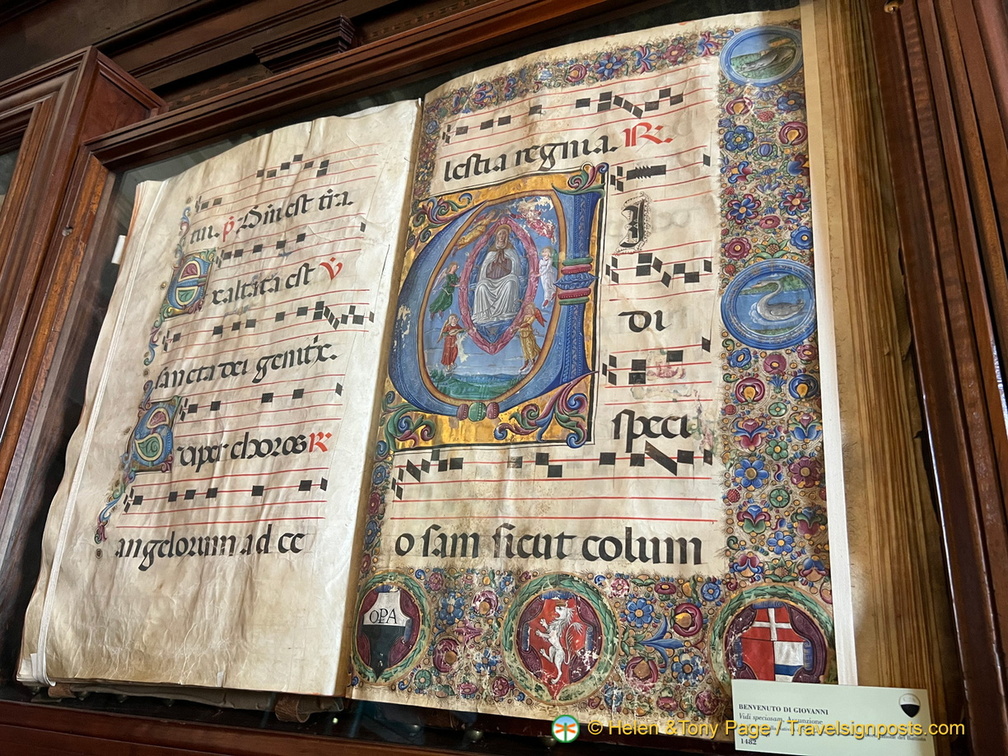 tur. ṗ. Qui est tr̄a.
Exaltata est ℣
sancta dei genitx̄.
Super choros ℟
angelorum ad ce
lestia regnia. ℟.
VI
di
speci
o sam sicut colum
OPA
BENVENUTO DI GIOVANNI
Vidi speciosam, Assunzione
1482
© Helen & Tony Page / Travelsignposts.com